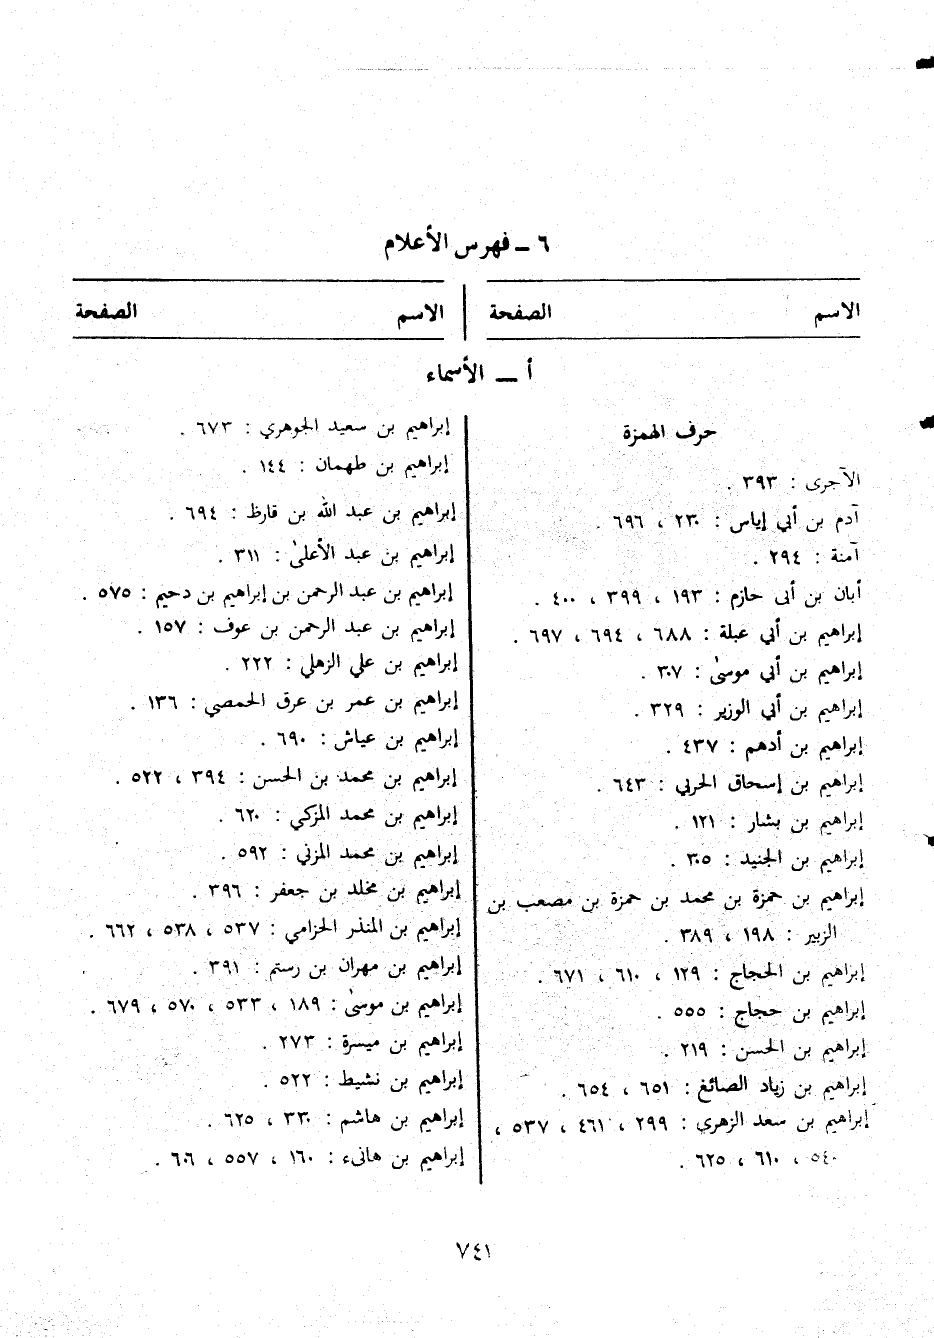 ٦ ــ فهرس الأعلام
الاسم الصفحة
الاسم الصفحة
أ ــ الأسماء
حرف الهمزة
الآجرى : ٣٩٣ .
آدم بن أبي إياس : ٢٣٠ ، ٦٩٦ .
آمنة : ٢٩٤ .
أبان بن أبى حازم : ١٩٣ ، ٣٩٩ ، ٤٠٠ .
إبراهيم بن أبي عبلة : ٦٨٨ ، ٦٩٤ ، ٦٩٧ .
إبراهيم بن أبي موسىٰ : ٣٠٧ .
إبراهيم بن أبي الوزير : ٣٢٩ .
إبراهيم بن أدهم : ٤٣٧ .
إبراهيم بن إسحاق الحربي : ٦٤٣ .
إبراهيم بن بشار : ١٢١ .
إبراهيم بن الجنيد : ٣٠٥ .
إبراهيم بن حمزة بن محمد بن حمزة بن مصعب بن
الزبير : ١٩٨ ، ٣٨٩ .
إبراهيم بن الحجاج : ١٢٩ ، ٦١٠ ، ٦٧١ .
إبراهيم بن حجاج : ٥٥٥ .
إبراهيم بن الحسن : ٢١٩ .
إبراهيم بن زياد الصائغ : ٦٥١ ، ٦٥٤ .
إبراهيم بن سعد الزهري : ٢٩٩ ، ٤٦١ ، ٥٣٧ ،
٥٤٠ ، ٦١٠ ، ٦٢٥ .
إبراهيم بن سعيد الجوهري : ٦٧٣ .
إبراهيم بن طهمان : ١٤٤ .
إبراهيم بن عبد الله بن قارظ : ٦٩٤ .
إبراهيم بن عبد الأعلىٰ : ٣١١ .
إبراهيم بن عبد الرحمن بن إبراهيم بن دحيم : ٥٧٥ .
إبراهيم بن عبد الرحمن بن عوف : ١٥٧ .
إبراهيم بن علي الزهلي : ٢٢٢ .
إبراهيم بن عمر بن عرق الحمصي : ١٣٦ .
إبراهيم بن عياش : ٦٩٠ .
إبراهيم بن محمد بن الحسن : ٣٩٤ ، ٥٢٢ .
إبراهيم بن محمد المزكي : ٦٢٠ .
إبراهيم بن محمد المزني : ٥٩٢ .
إبراهيم بن مخلد بن جعفر : ٣٩٦ .
إبراهيم بن المنذر الحزامي : ٥٣٧ ، ٥٣٨ ، ٦٦٢ .
إبراهيم بن مهران بن رستم : ٣٩١ .
إبراهيم بن موسىٰ : ١٨٩ ، ٥٣٣ ، ٥٧٠ ، ٦٧٩ .
إبراهيم بن ميسرة : ٢٧٣ .
إبراهيم بن نشيط : ٥٢٢ .
إبراهيم بن هاشم : ٣٣٠ ، ٦٢٥ .
إبراهيم بن هانىء : ١٦٠ ، ٥٥٧ ، ٦٠٦ .
٧٤١